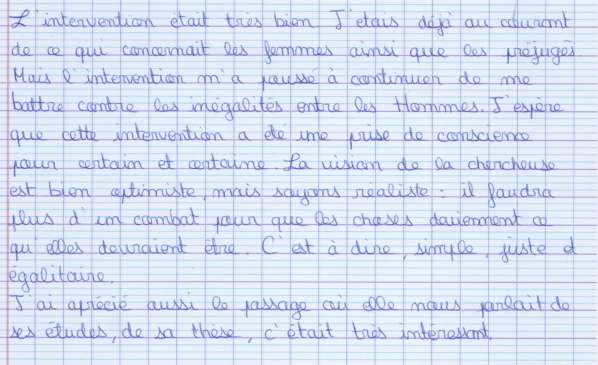 L'intervention était très bien. J'étais déjà au courant
de ce qui concernait les femmes ainsi que les préjugés.
Mais l'intervention m'a poussé à continuer de me
battre contre les inégalités entre les Hommes. J'espère
que cette intervention a été une prise de conscience
pour certain et certaine. La vision de la chercheuse
est bien optimiste, mais soyons réaliste : il faudra
plus d'un combat pour que les choses deviennent ce
qu'elles devraient être. C'est à dire, simple, juste et
égalitaire.
J'ai aprécié aussi le passage où elle nous parlait de
ses études, de sa thèse, c'était très intéressant.